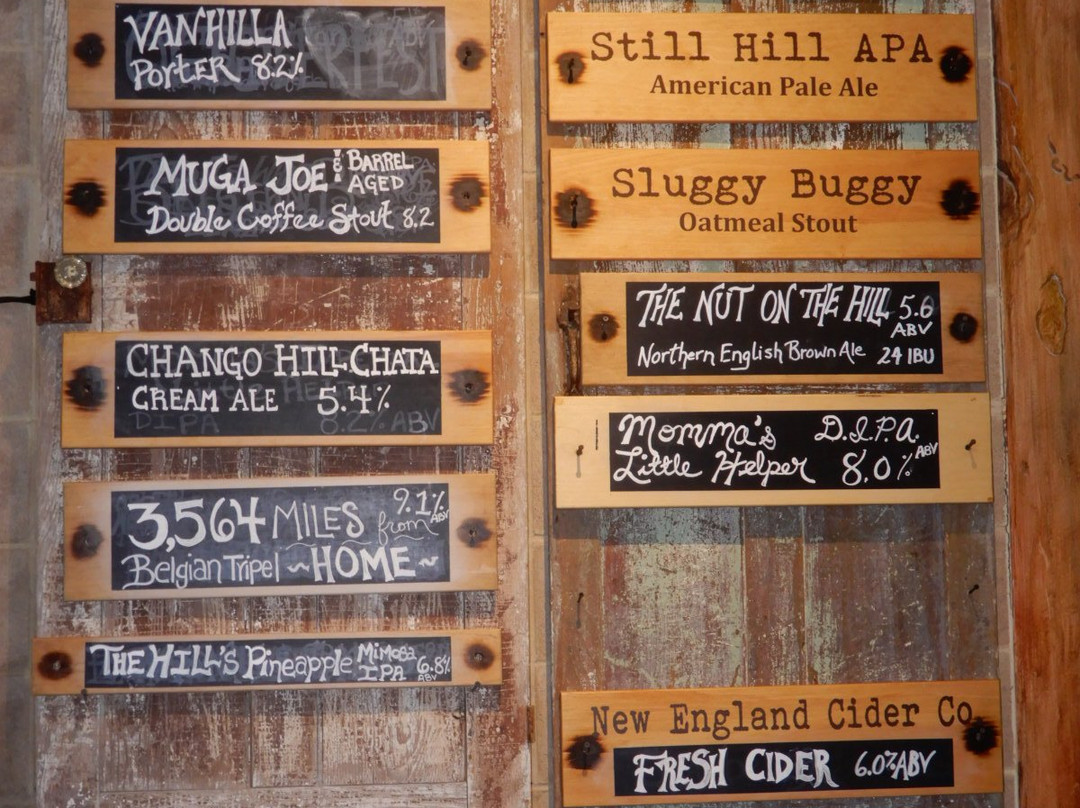 VANHILLA
PORTER 8.2%
MUGA JOE BARREL
AGED
Double Coffee Stout 8.2
CHANGO HILLCHATA
CREAM ALE 5.4%
DIPA 8.2% ABV
3,564 MILES from 9.1% ABV
Belgian Tripel ~HOME~
THE HILL'S Pineapple MIMOSA
IPA 6.8%
ABV
Still Hill APA
American Pale Ale
Sluggy Buggy
Oatmeal Stout
THE NUT ON THE HILL 5.6
ABV
Northern English Brown Ale 24 IBU
Momma's D.I.P.A.
Little Helper 8.0% ABV
New England Cider Co
FRESH CIDER 6.0% ABV